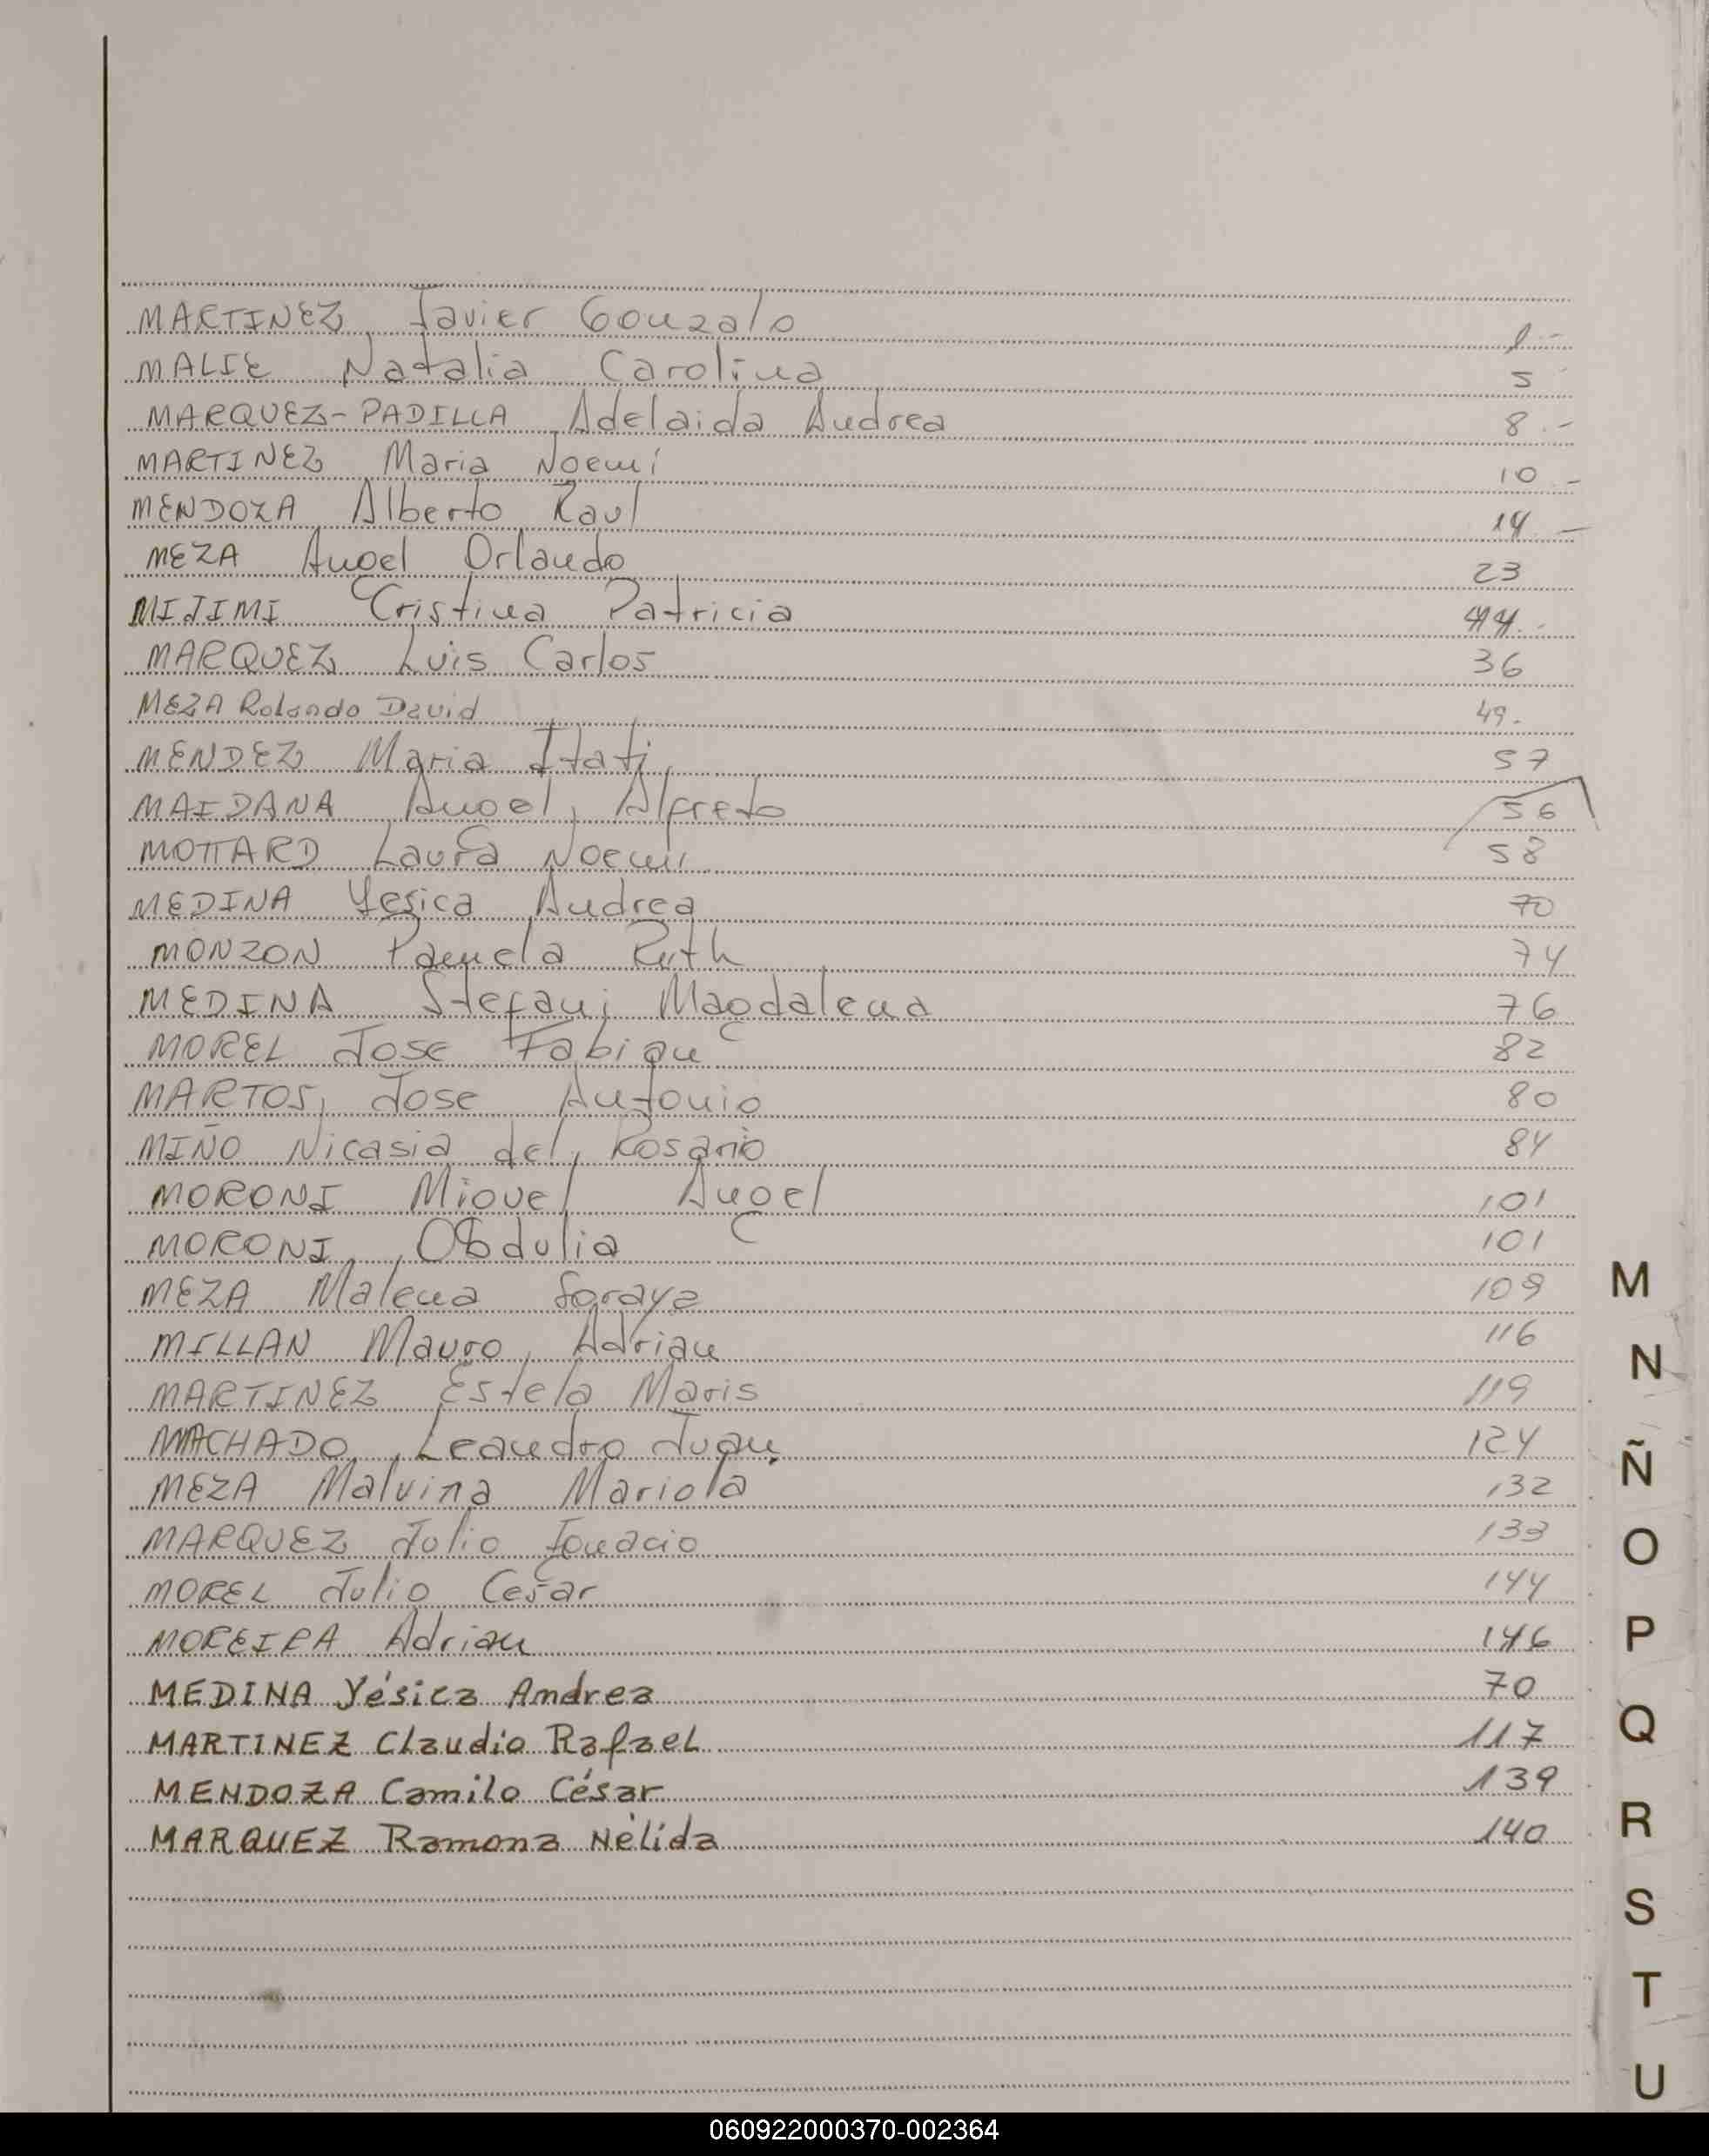 MARTINEZ Javier Gonzalo 1.-
MALIE Natalia Carolina 5
MARQUEZ-PADILLA Adelaida Andrea 8.-
MARTINEZ Maria Noemí 10.-
MENDOZA Alberto Raul 14.-
MEZA Angel Orlando 23
MIJIMI Cristina Patricia 44.-
MARQUEZ Luis Carlos 36
MEZA Rolando David 49.
MENDEZ Maria Itati 57
MAIDANA Angel Alfredo 56
MOTTARD Laura Noemi 58
MEDINA Yesica Andrea 70
MONZON Pamela Ruth 74
MEDINA Stefani Magdalena 76
MOREL Jose Fabian 82
MARTOS, Jose Antonio 80
MIÑO Nicasia del Rosario 84
MORONI Miguel Angel 101
MORONI Obdulia 101
MEZA Malena Soraya 109
MILLAN Mauro Adrian 116
MARTINEZ Estela Maris 119
MACHADO Leandro Juan. 124
MEZA Malvina Mariola 132
MARQUEZ Julio Ignacio 133
MOREL Julio Cesar 144
MOREIRA Adrian 146
MEDINA Yésica Andrea 70
MARTINEZ Claudio Rafael 117
MENDOZA Camilo César 139
MARQUEZ Ramona Nélida 140
M
N
Ñ
O
P
Q
R
S
T
U
060922000370-002364